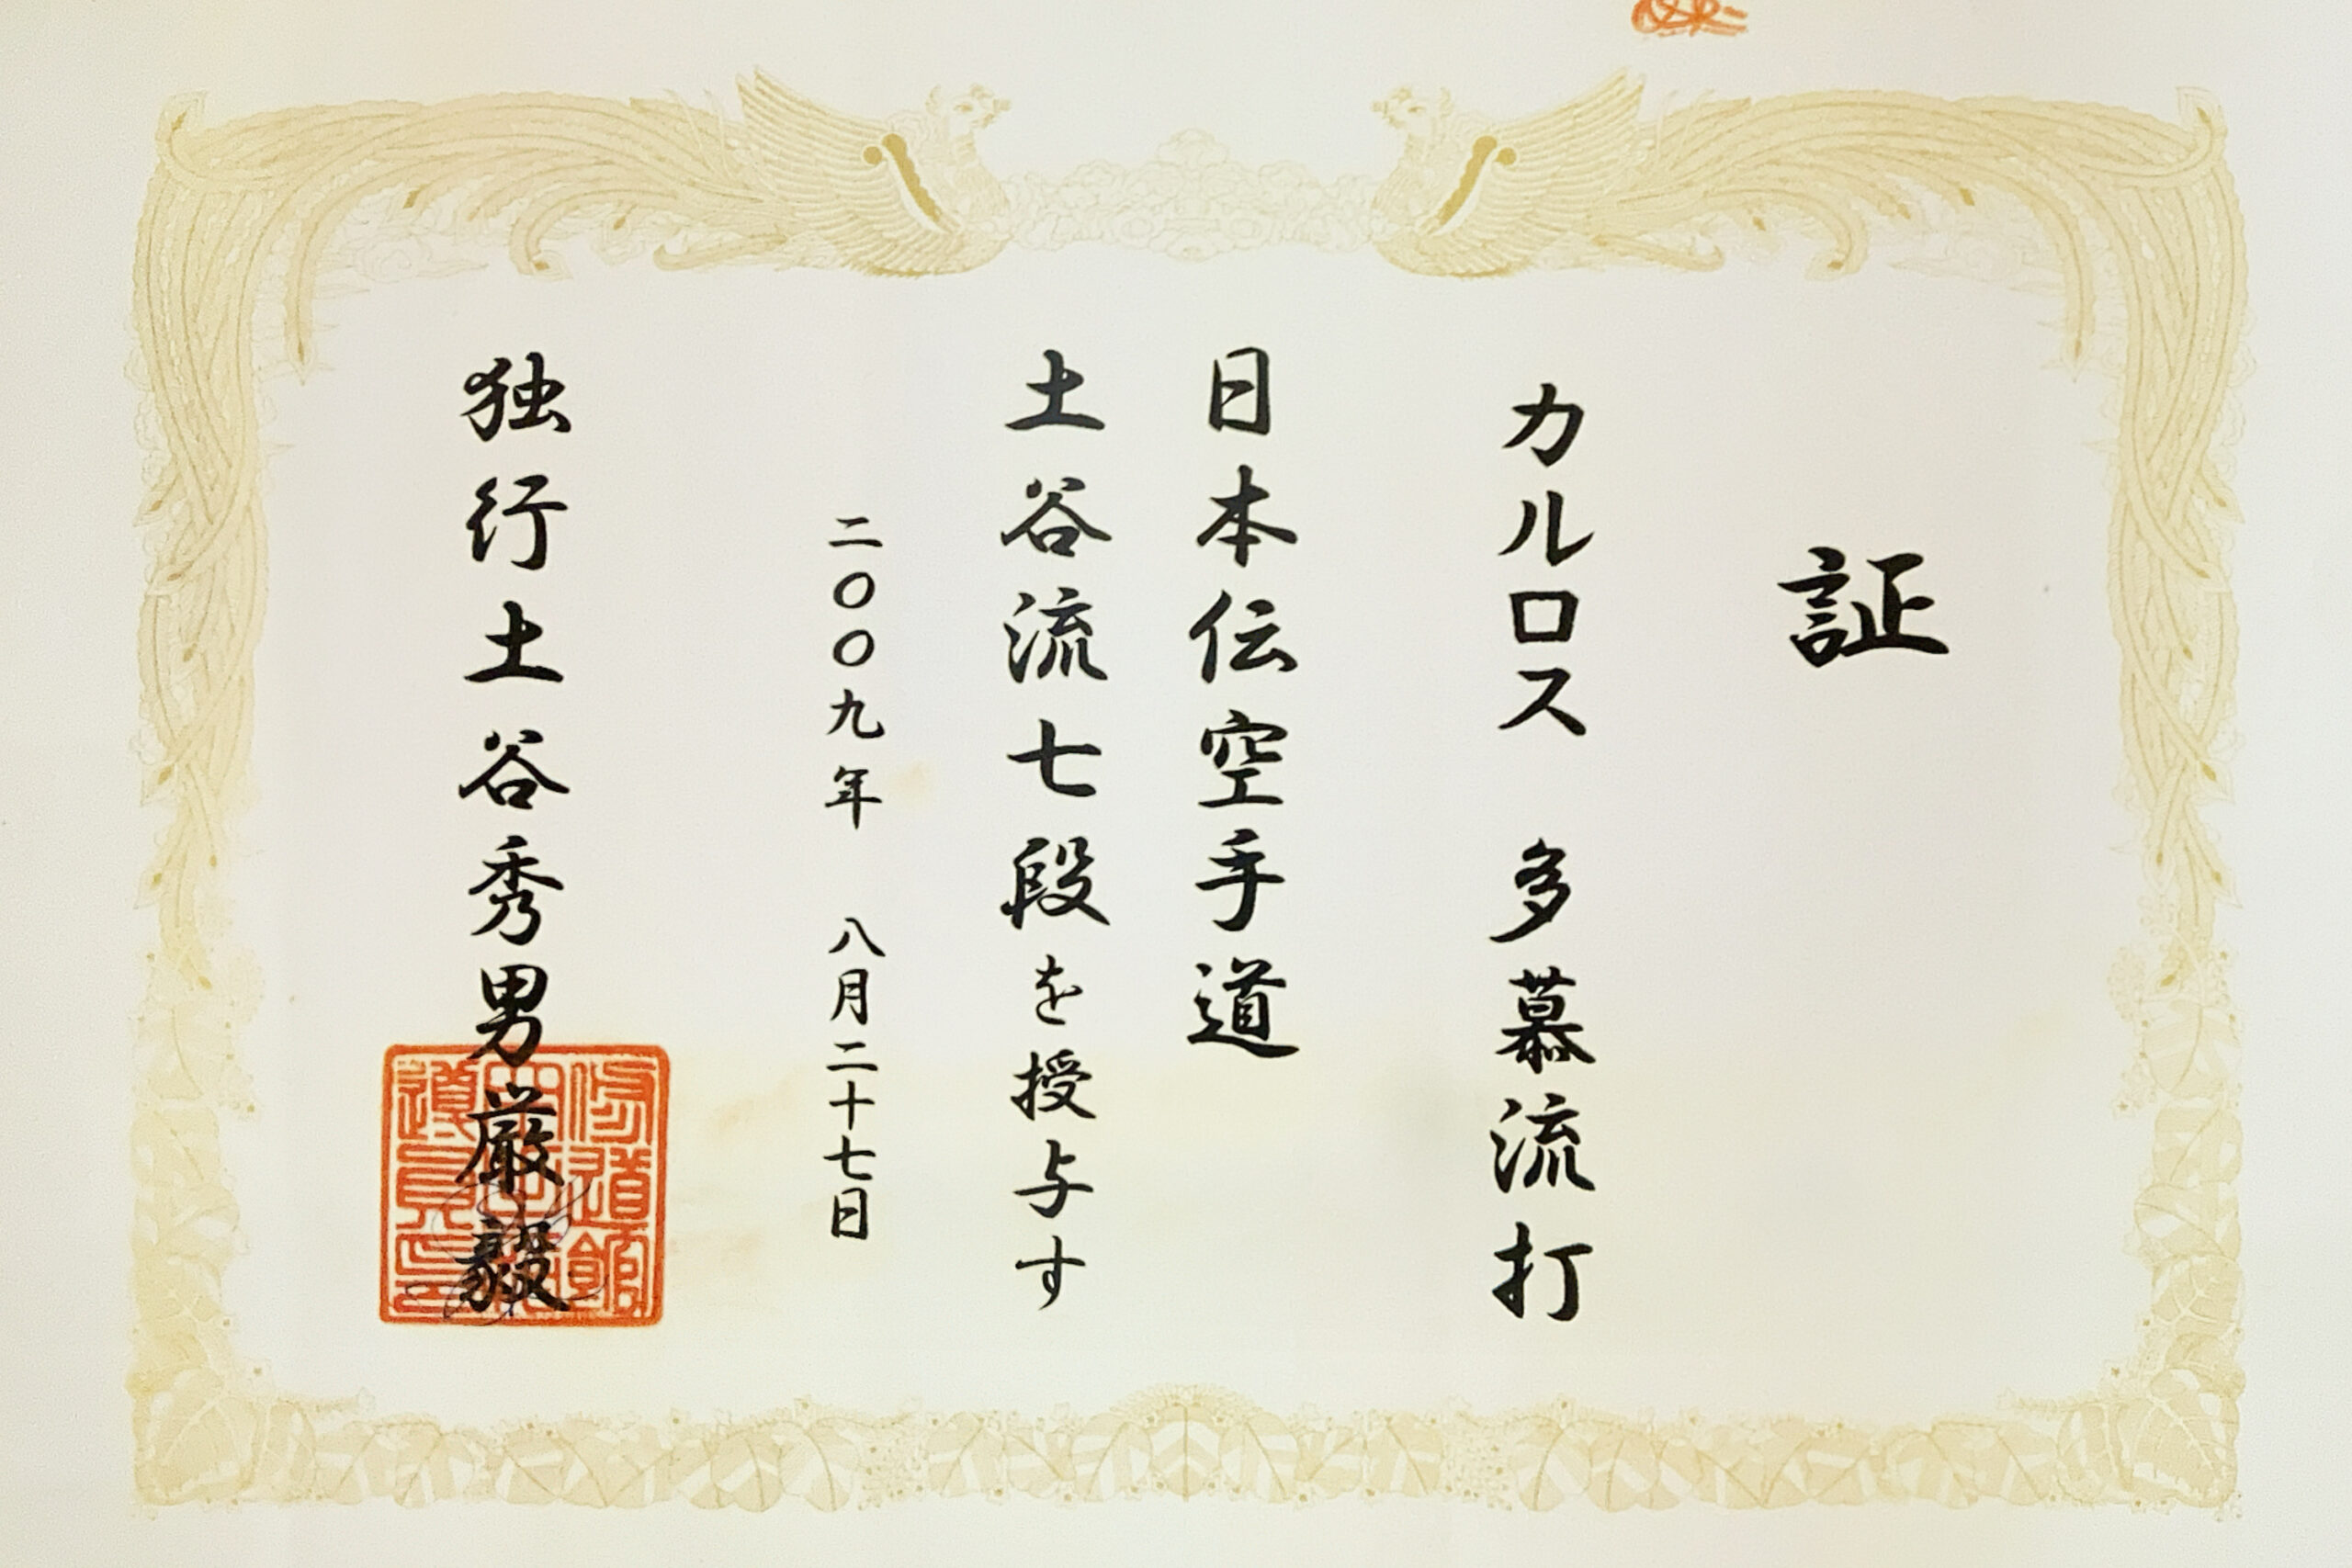 証
カルロス 多慕流打
日本伝空手道
土谷流七段を授与す
二〇〇九年 八月二十七日
独行土谷秀男厳毅